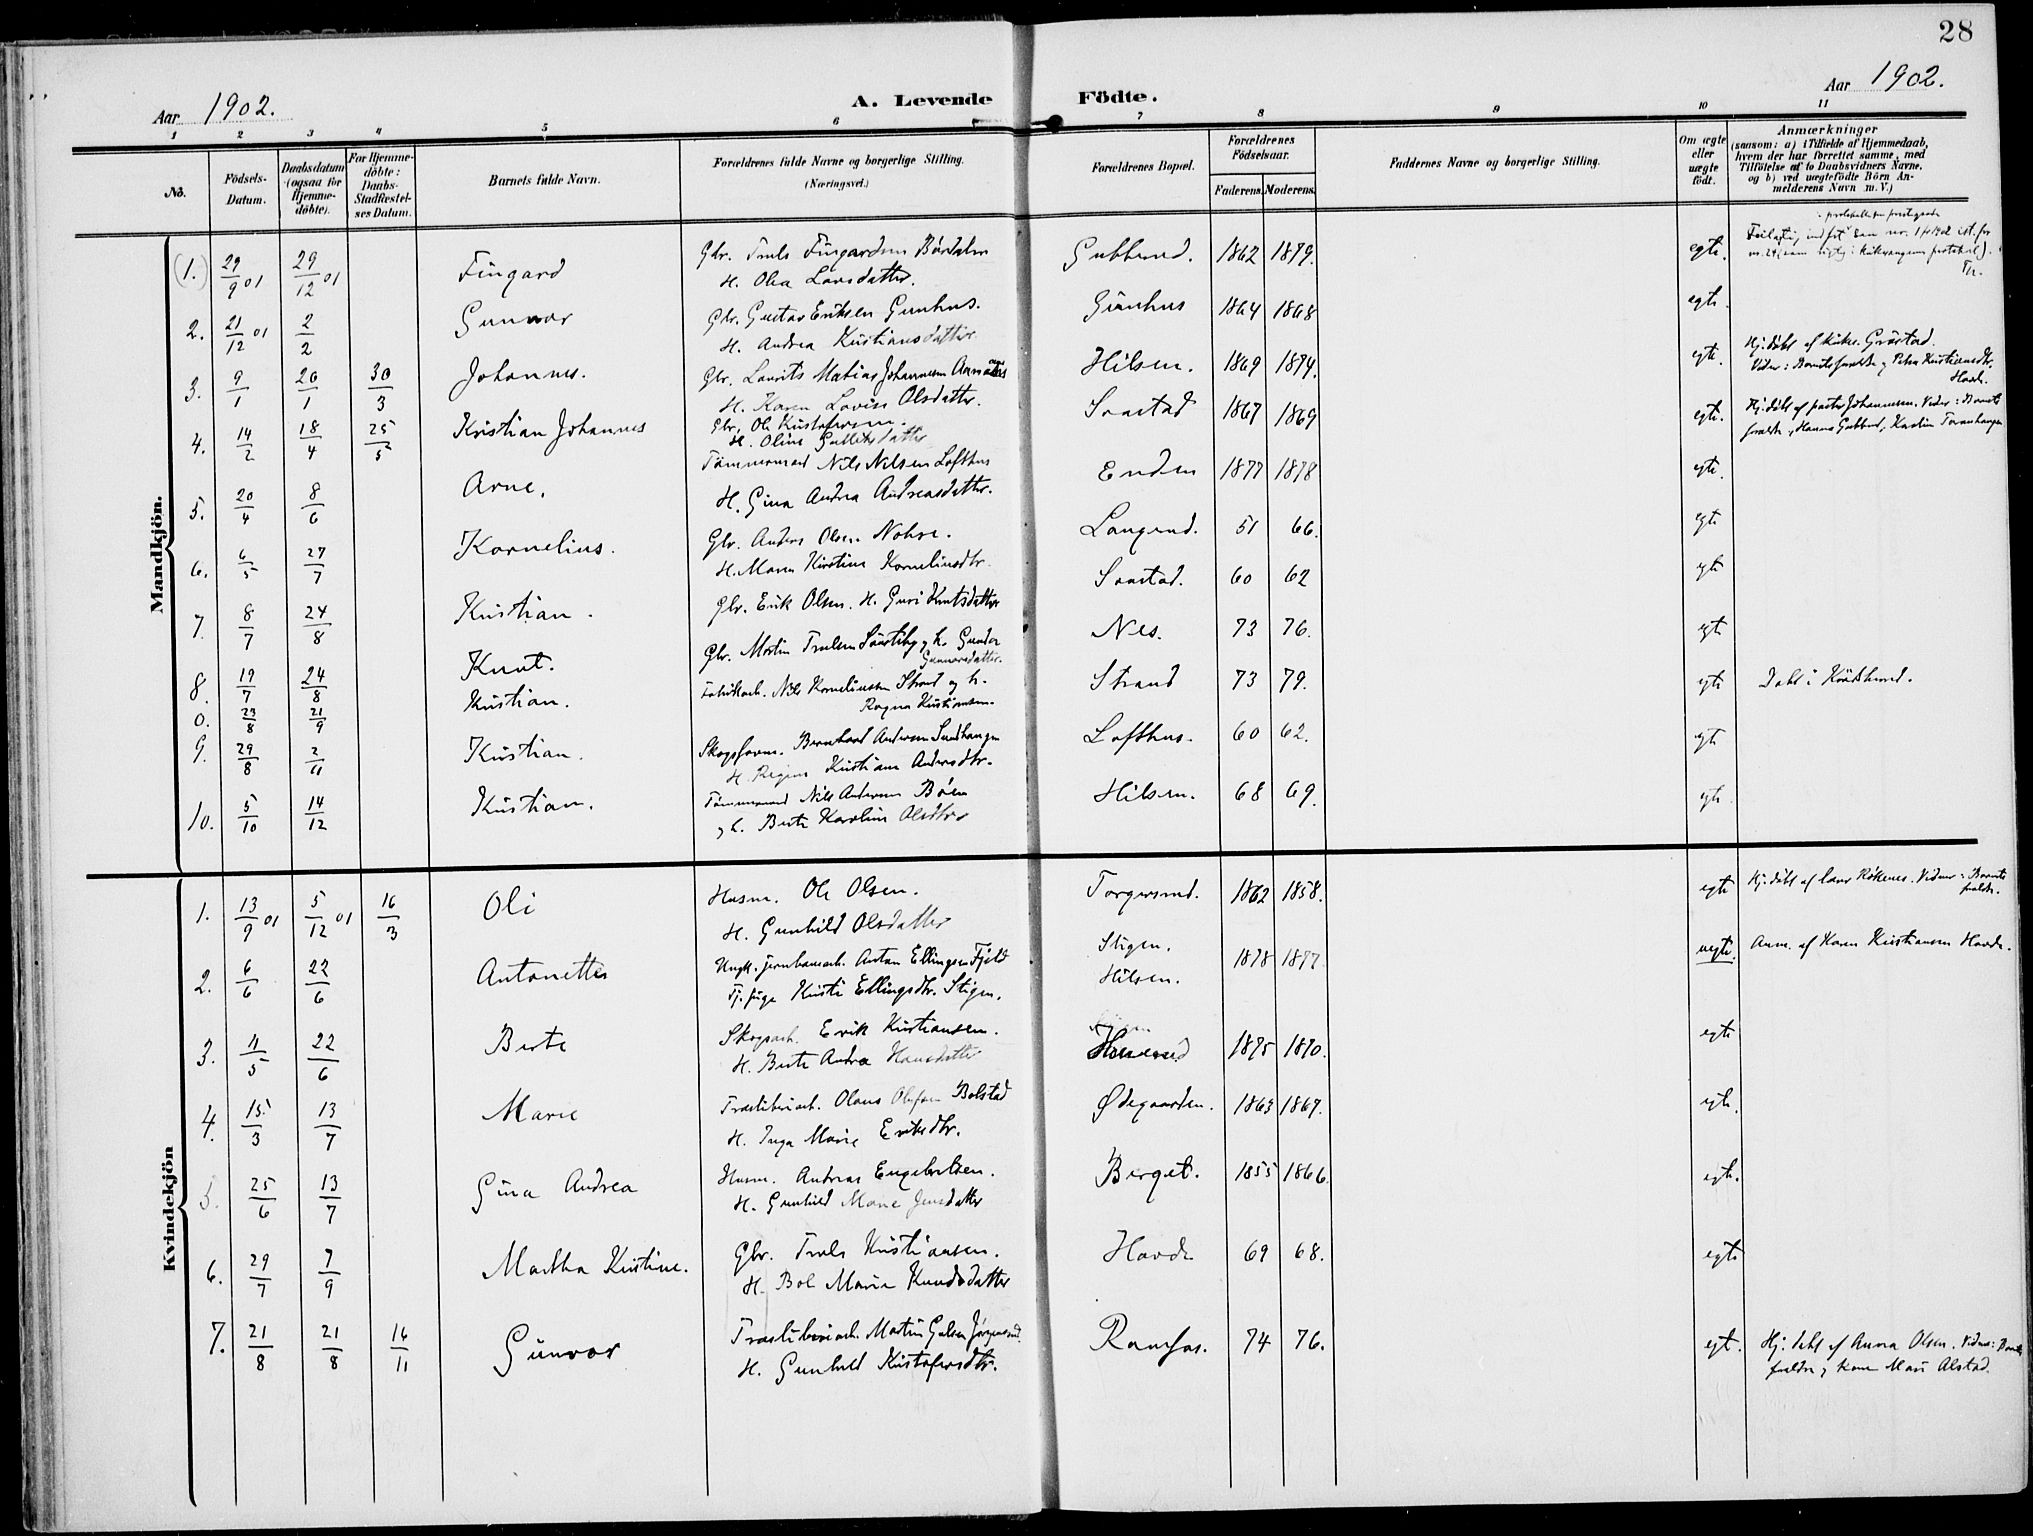 28
Aar 1902.
A. Levende Födte.
Aar 1902.
1 2 3 4 5 6 7 8 9 10 11
No.
Födsels-Datum.
Daabsdatum (ogsaa for Hjemme-döbte).
For Hjemme-döbte: Daabs-Stadfæstel-ses Datum.
Barnets fulde Navn.
Forældrenes fulde Navne og borgerlige Stilling.
(Næringsvei.)
Forældrenes Bopæl.
Forældrenes Födselsaar.
Faderens. Moderens.
Faddernes Navne og borgerlige Stilling.
Om ægte eller uægte födt.
Anmærkninger
(saasom: a) i Tilfælde af Hjemmedaab, hvem der har forrettet samme, med Tilföielse af to Daabsvidners Navne, og b) ved uægtefödte Börn An-melderens Navn m. V.)
Mandkjön.
(1.) 29/9 01 29/12 01 Fingard Gbr. Truls Fingardsen Børdalen
H. Olea Larsdatter. Gubberud. 1862 1879. egte.
2. 21/12 01 2/2 Gunvor Gbr. Gustav Eriksen Gunhus.
H. Andrea Kristiansdatter Gunhus 1864 1868 egte.
3. 9/1 20/1 30/3 Johannes. Gbr. Laurits Matias Johannesen
H. Karen Lovise Olsdatter. Hilsen. 1869 1874. egte. Hj. døbt af kirkes. Grøstad.
4. 14/2 18/4 25/5 Kristian Johannes Gbr. Ole Kristofersen.
H. Oline Gulliksdatter Saastad 1867 1869 egte. Hj. døbt af pastor Johannessen. Vidner: Barnets
5. 20/4 8/6 Arne. Tømmermand Nils Nilsen Lofthus
H. Gina Andrea Andreasdatter. Enden 1877 1878 egte.
6. 6/5 27/7 Kornelius. Gbr. Anders Olsen Nohre.
H. Maren Kirstine Korneliusdtr. Langerud. 51 66. egte
7. 8/7 24/8 Kristian. Gbr. Erik Olsen. H. Guri Knutsdatter Saastad. 60 62 egte
8. 19/7 24/8 Knut. Gbr. Martin Trulsen og h. Gunda
Gunnersdatter. Nes. 73 76. egte
0. 23/8 21/9 Kristian. Fabrikarb. Nils Korneliussen Strand og h.
Ragna Kristiansen. Strand 73 79. egte Døbt i Krødsherred.
9. 29/8 2/11 Kristian. Bernhard Andersen Sandhaugen
H. Regine Kristiane Andersdtr. Lofthus. 60 62. egte
10. 5/10 14/12 Kristian. Tømmermand Nils Andersen Bøen
og h. Berte Karoline Olsdtr Hilsen. 68 69. egte
Kvindekjön
1. 13/9 01 5/12 01 16/3 Oli Husm. Ole Olsen.
H. Gunhild Olsdatter Torgersrud. 1862 1858. egte Hj. døbt af lærer Røkenes. Vidner: Barnets
forældre.
2. 6/6 22/6 Antonette Ungk. jernbanearb. Anton Ellingsen Fjeld
Tj. pige Kristi Ellingsdtr. Stigen. Stigen.
Hilsen. 1878 1877 uegte. Anm. af Karen Kristiansen Hovde.
3. 11/5 22/6 Berte Skogsarb. Erik Kristiansen.
H. Berte Andrea Hansdatter 1875 1870. egte
4. 15/3 13/7 Marie Træsliberiarb. Olaus Olufsen Bolstad
H. Inga Marie Eriksdtr. Ødegaarden. 1863 1867. egte.
5. 25/6 13/7 Gina Andrea Husm. Andreas Engebretsen.
H. Gunhild Marie Jensdatter Berget. 1855 1866. egte.
6. 29/7 7/9 Martha Kristine. Gbr. Truls Kristiansen.
H. Bol Marie Knudsdatter Hovde 69 68. egte
7. 21/8 21/8 16/11 Gunvor Træsliberiarb. Martin Gulsen
H. Gunhild Kristofersdtr. Ramfos. 74 76. egt. Hj. døbt af Anna Olsen. Vidner: Barnets
forældre og kone Mari Alstad.